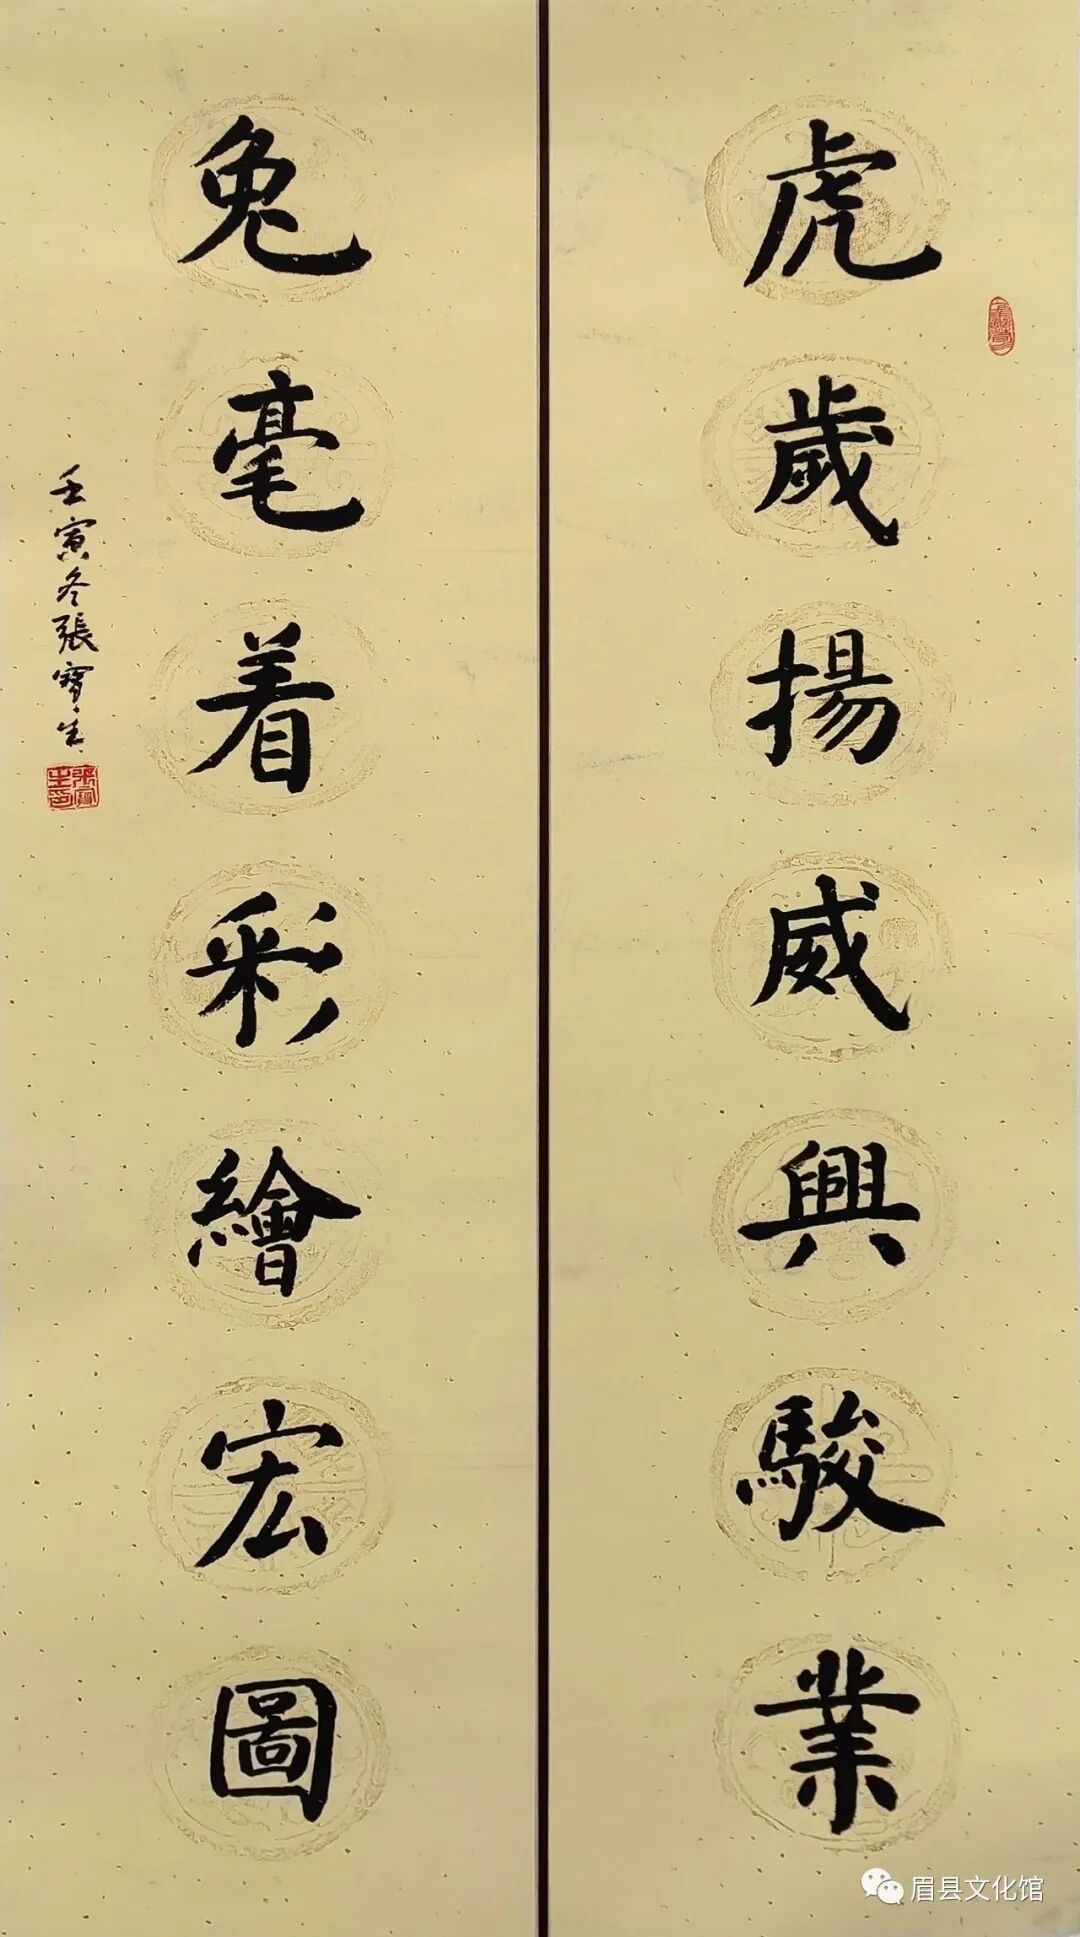 虎歲揚威興駿業
兔毫着彩繪宏圖
壬寅冬張寶生
張寶生印
眉县文化馆